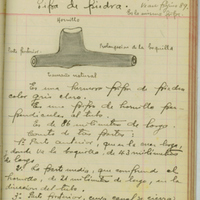 Pipa de piedra.
Hornillo
Parte posterior
Prolongacion de la boquilla
Tamaño natural
Es una hermosa pipa de piedra
color gris
Es una pipa de hornillo per-
pendicular al tubo.
Es de 86 milimetros de largo
Consta de tres partes:
1º Parte anterior, que es la mas larga,
donde va la boquilla, de 43 milimetros
de largo.
2º La parte media, que comprende el
hornillo, de 21 milimetros de largo, en la
direccion del tubo.
3º Parte posterior,